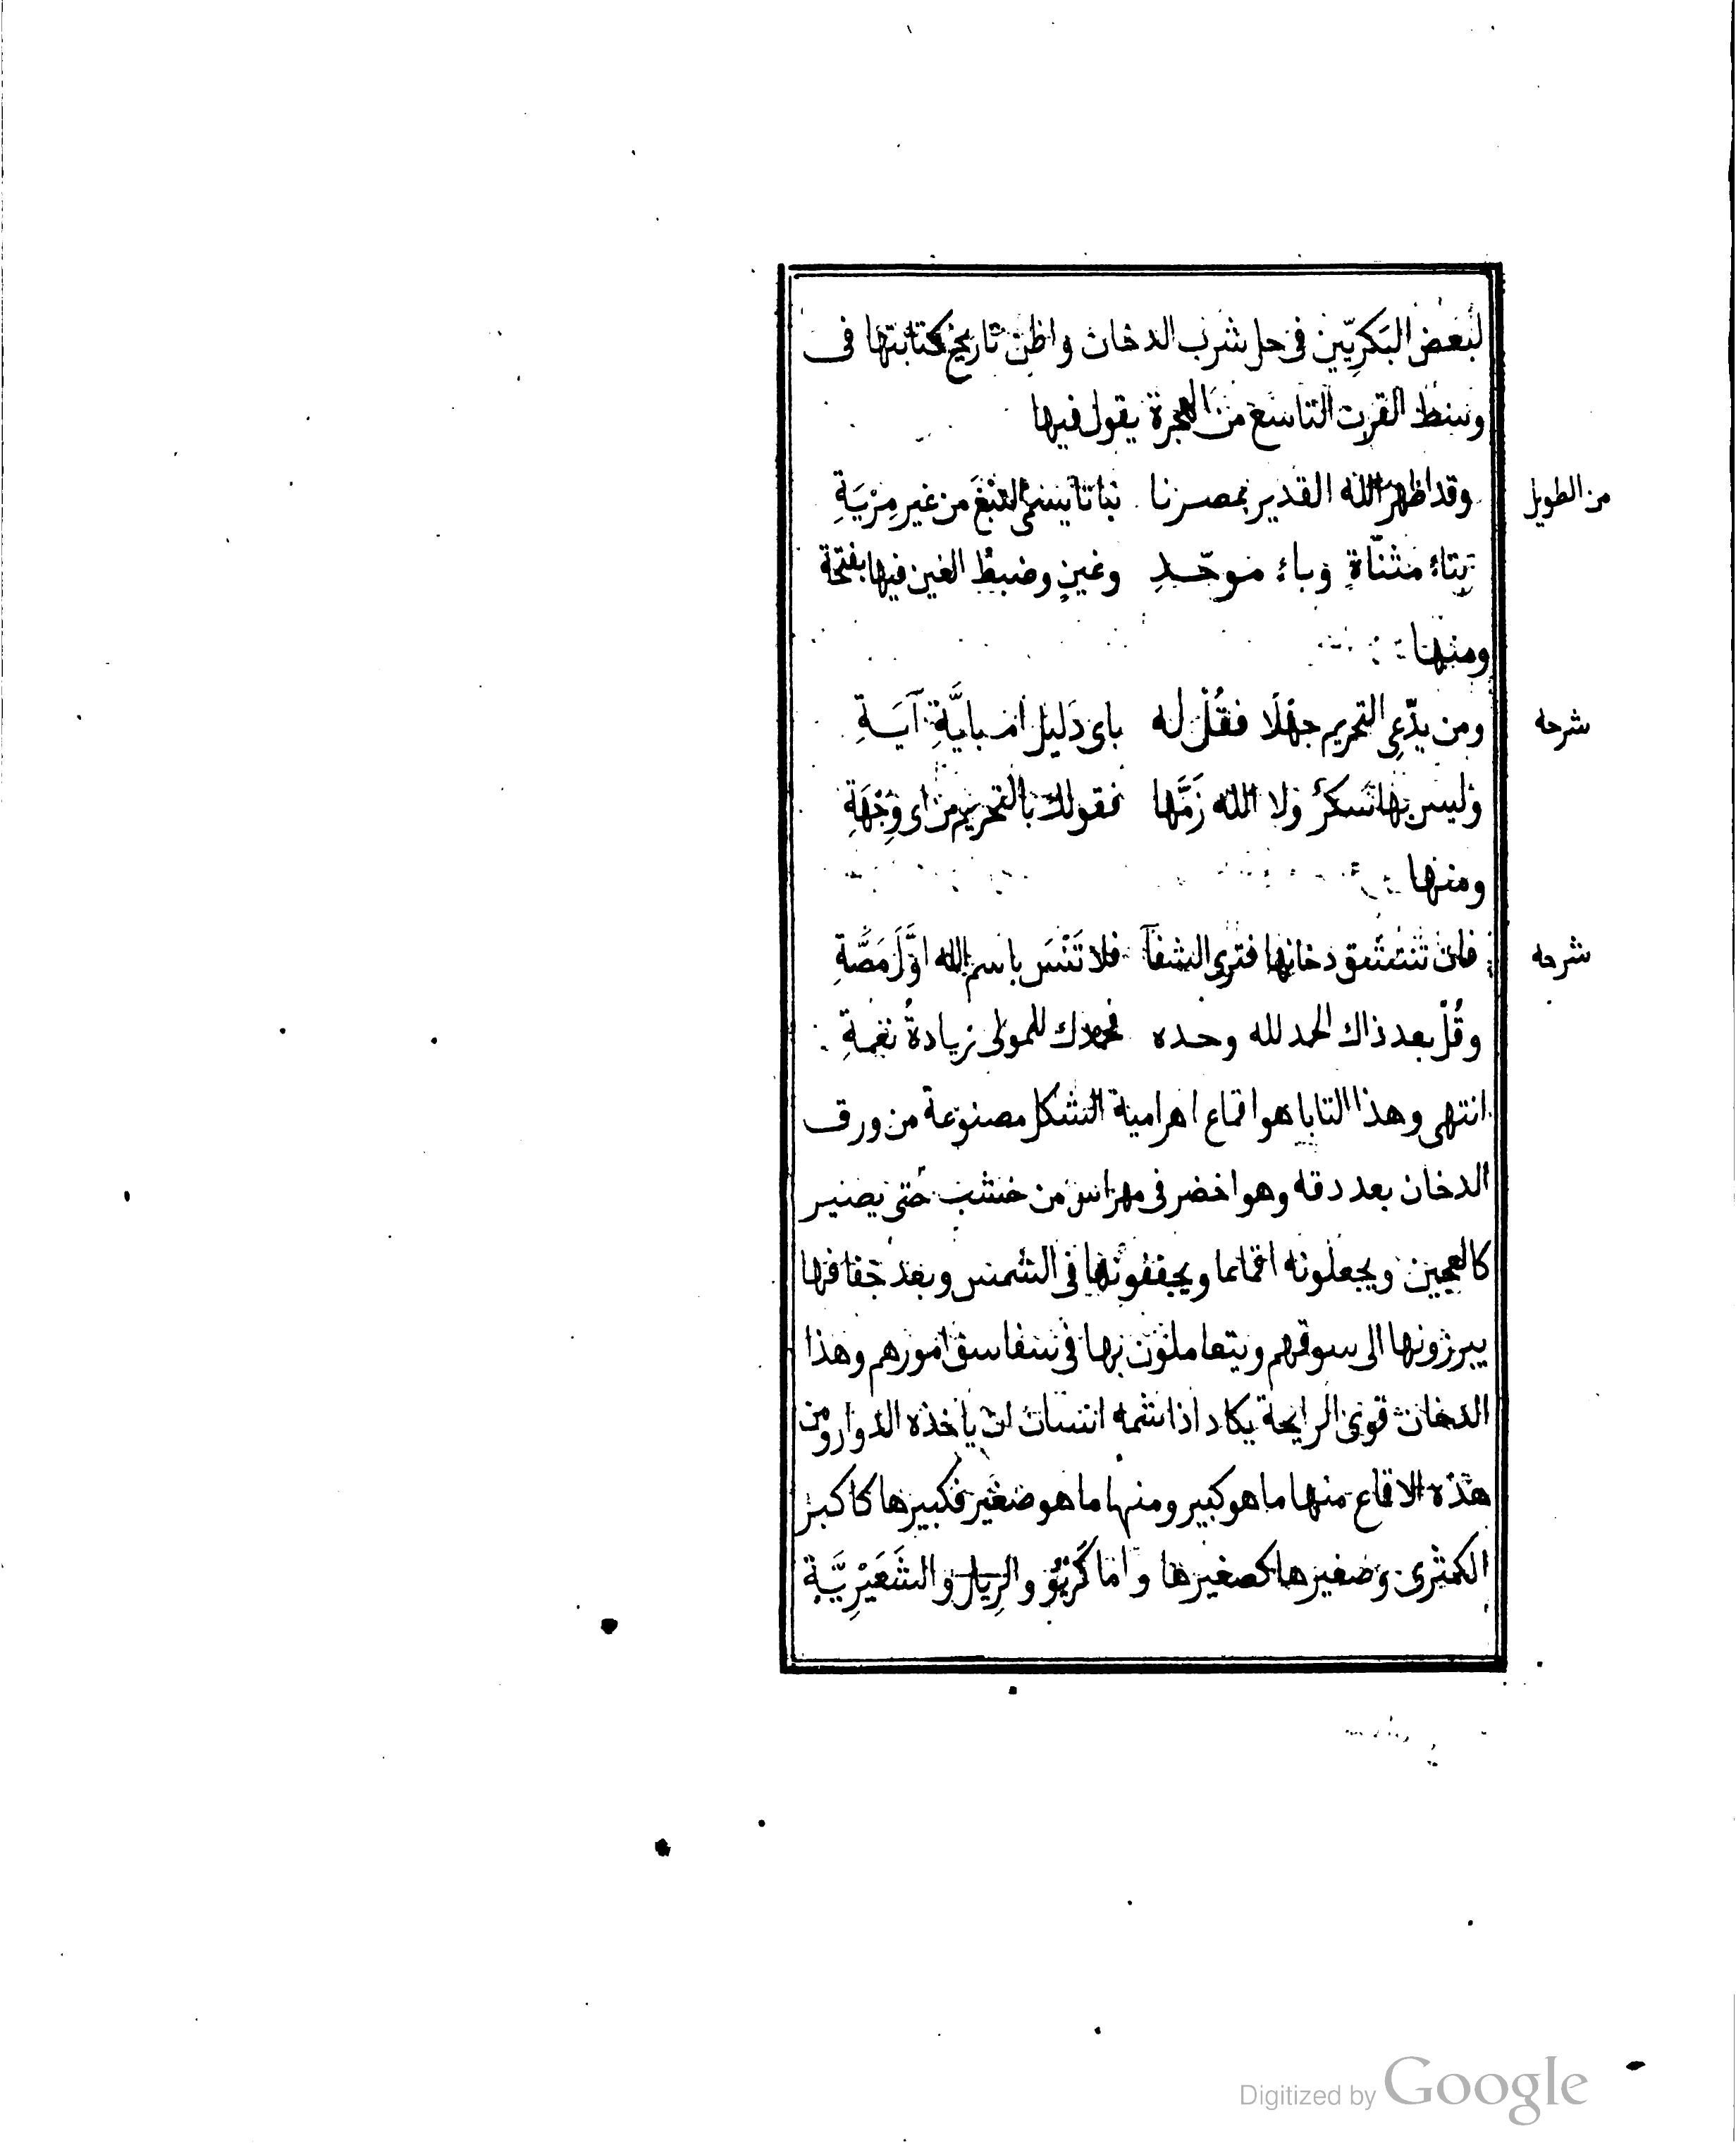 لبعض البَكرِيّين فى حل شرب الدخان واظن تاريخ كتابتها فى
وسط القرن التاسع من الهجرة يقول فيها
من الطويل
وقد اظهر الله القدير بمصرنا نباتا يسمى التَبْغَ من غير مِرْيَةِ
بتاء مثنّاة وباء موحّدٍ وغينٍ وضبط الغين فيها بفتحة
ومنها
شرحه
ومن يدّعِى التحريم جهْلًا فقُلْ له باى دَليل ام بايَّةِ آيَةِ
وليس بها سَكرٌ ولا الله ذَمَّها فقولك بالتحريم من اى وِجْهَةِ
ومنها
شرحه
فان تنتشق دخانها فترى الشفآ فلا تَنْسَ باسم الله اوَّلَ مَصَّةِ
وقُلْ بعد ذاك الحمد لله وحده فحمدك للمولى زيادةُ نعمةِ
انتهى وهذا التابا هو اقماع اهرامية الشكل مصنوعة من ورق
الدخان بعد دقه وهو اخضر فى مهراس من خشب حتى يصير
كالعجين ويجعلونه اقماعا ويجففونها فى الشمس وبعد جفافها
يبرزونها الى سوقهم ويتعاملون بها فى سفاسف امورهم وهذا
الدخان قوى الرايحة يكاد اذا شمه انسان ان ياخذه الدوار ومن
هذه الاقماع منها ما هو كبير ومنها ما هو صغير فكبيرها كاكبر
الكمثرى وصغيرها كصغيرها واما كَرْيُو والرِيل والشَعَيْرِيَّة
Digitized by Google